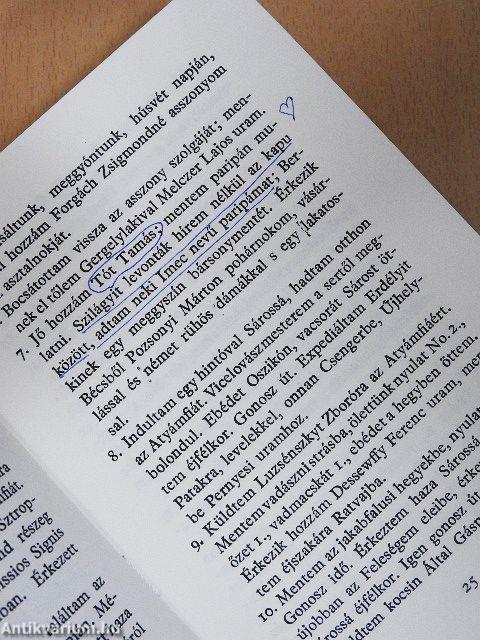 saltunk, meggyóntunk, húsvét napján,
l hozzám Forgách Zsigmondné asszonyom
asztalnokját.
Bocsátottam vissza az asszony szolgáját; men-
nek el tőlem Gergelylakival Melczer Lajos uram.
7. Jő hozzám Tót Tamás; mentem paripán mu-
latni. Szilágyit levonták hirem nélkil az kapu
között, adtam neki Imec nevü paripámat; Ber-
kinek egy meggyszín bársonymentét. Érkezik
Bécsből Pozsonyi Márton pohárnokom, vásár-
lással és német rühös dámákkal s egy lakatos-
sal.
8. Indultam egy hintóval Sárossá, hadtam otthon
az Atyámfiát. Vicelovászmesterem a sertől meg-
bolondul. Ebédet Oszikón, vacsorát Sárost öt-
tem éjfélkor. Gonosz út. Expediáltam Erdélyit
Patakra, levelekkel, onnan Csengerbe, Újhely-
be Pernyesi uramhoz.
9. Küldtem Luzsénszkyt Zboróra az Atyámfiáért.
Mentem vadászni strásba, ölettünk nyulat No. 2.,
őzet 1., vadmacskát 1., ebédet a hegyben öttem.
Érkezik hozzám Dessewffy Ferenc uram, men-
tem éjszakára Ratvajba.
10. Mentem az jakabfalusi hegyekbe, nyulat
Gonosz idő. Érkeztem haza Sárossá
újobban az Feleségem eleibe, érke
rossá éjfélkor. Igen gonosz ú
ldtem kocsin Által Gásp
25
ra
fiát.
Sztrop-
d részeg
issios Signis
ban. Érkezett
dáltam az
Mé-
oza
ról
Antikvarium.hu